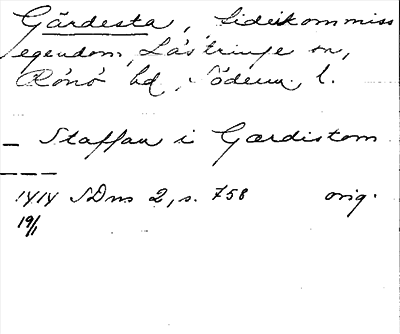 Gärdesta, fideikommiss
egendom, Lästringe sn,
Rönö hd, Söderm. l.
– Staffan i Gærdistom
1414 SDns 2, s. 758 orig.
19/1